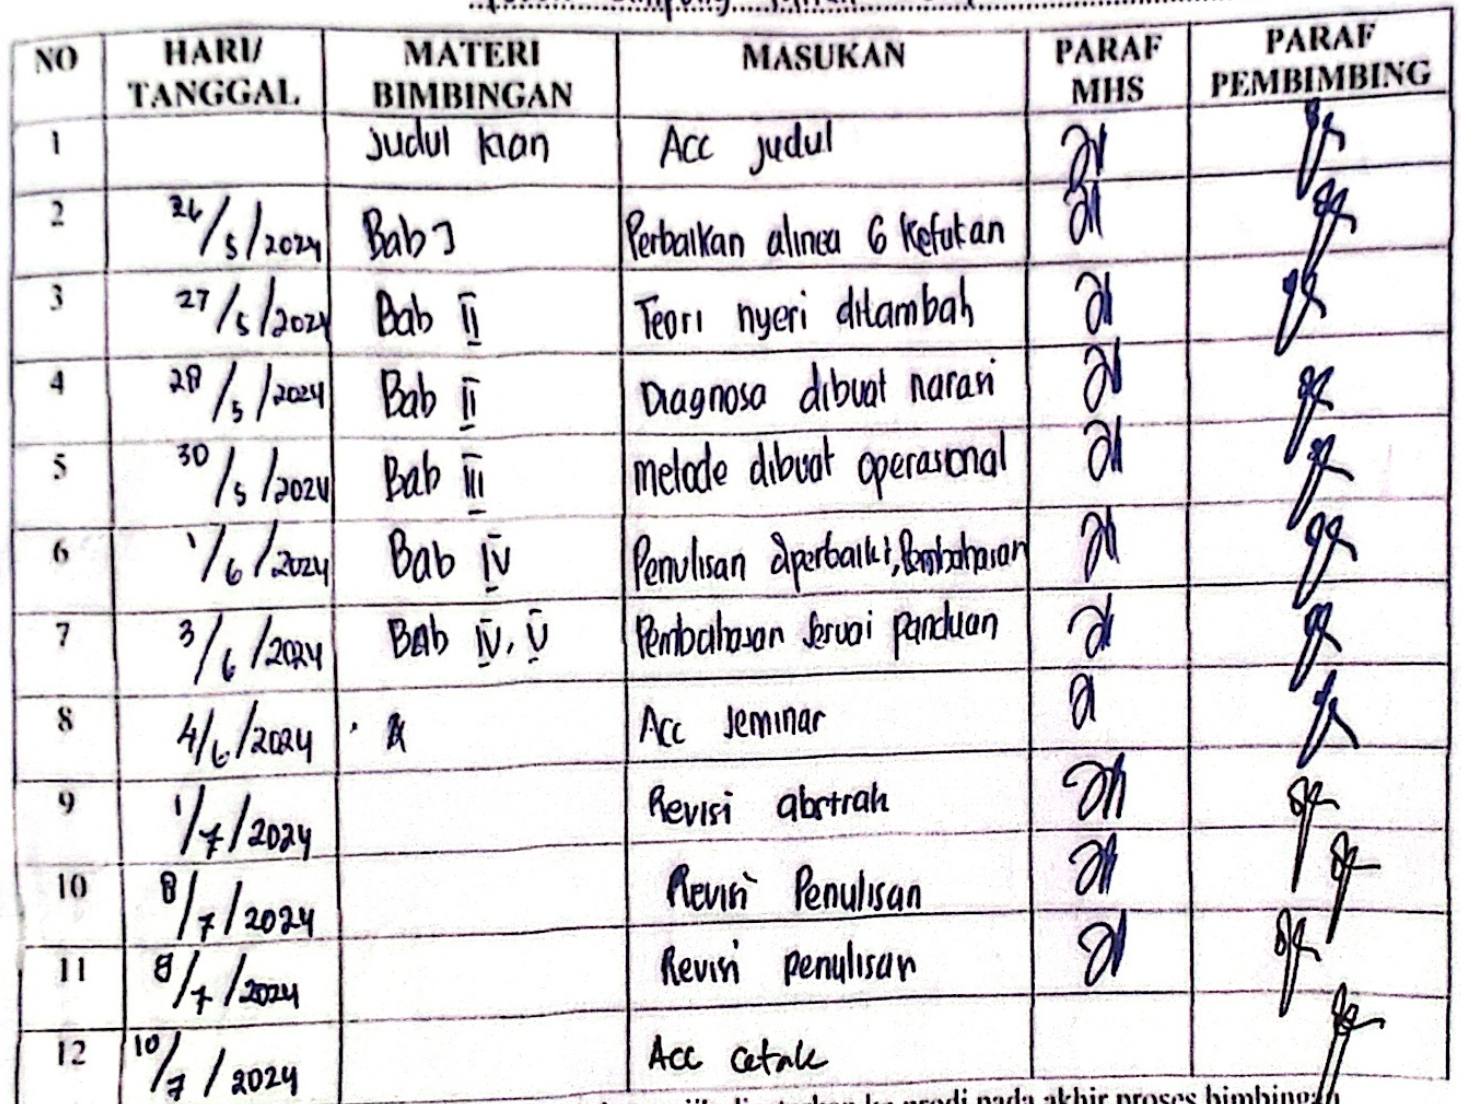 NO HARI/ TANGGAL MATERI BIMBINGAN MASUKAN PARAF MHS PARAF PEMBIMBING
1 Judul kian Acc judul
2 26/5/2024 Bab I Perbaikan alinea 6
3 27/5/2024 Bab II Teori nyeri ditambah
4 28/5/2024 Bab II Diagnosa dibuat narasi
5 30/5/2024 Bab III metode dibuat operasional
6 1/6/2024 Bab IV Penulisan diperbaiki, Pembahasan
7 3/6/2024 Bab IV, V Pembahasan sesuai panduan
8 4/6/2024 Acc seminar
9 1/7/2024 Revisi abstrak
10 8/7/2024 Revisi Penulisan
11 8/7/2024 Revisi penulisan
12 10/7/2024 Acc cetak
ke prodi pada akhir proses bimbingan